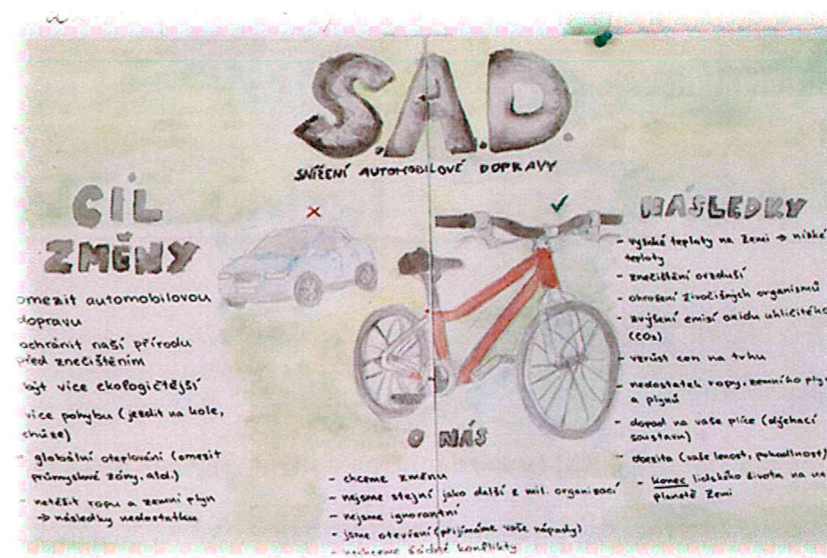 S.A.D.
SNÍŽENÍ AUTOMOBILOVÉ DOPRAVY
CÍL
ZMĚNY
omezit automobilovou
dopravu
ochránit naší přírodu
před znečištěním
být více ekologičtější
více pohybu (jezdit na kole,
chůze)
- globální oteplování (omezit
průmyslové zóny, atd.)
- netěžit ropu a zemní plyn
→ následky nedostatku
O NÁS
- chceme změnu
- nejsme stejní jako další z mil. organizací
- nejsme ignorantní
- jsme otevření (přijímáme vaše nápady)
- nechceme žádné konflikty
NÁSLEDKY
- vysoké teploty na Zemi → nízké
teploty
- znečištění ovzduší
- ohrožení živočišných organismů
- zvýšení emisí oxidu uhličitého
(CO₂)
- vzrůst cen na trhu
- nedostatek ropy, zemního
a plynů
- dopad na vaše plíce (dýchací
soustavu)
- obezita (vaše lenost, pohodlnost)
- Konec lidského života na
planetě Zemi